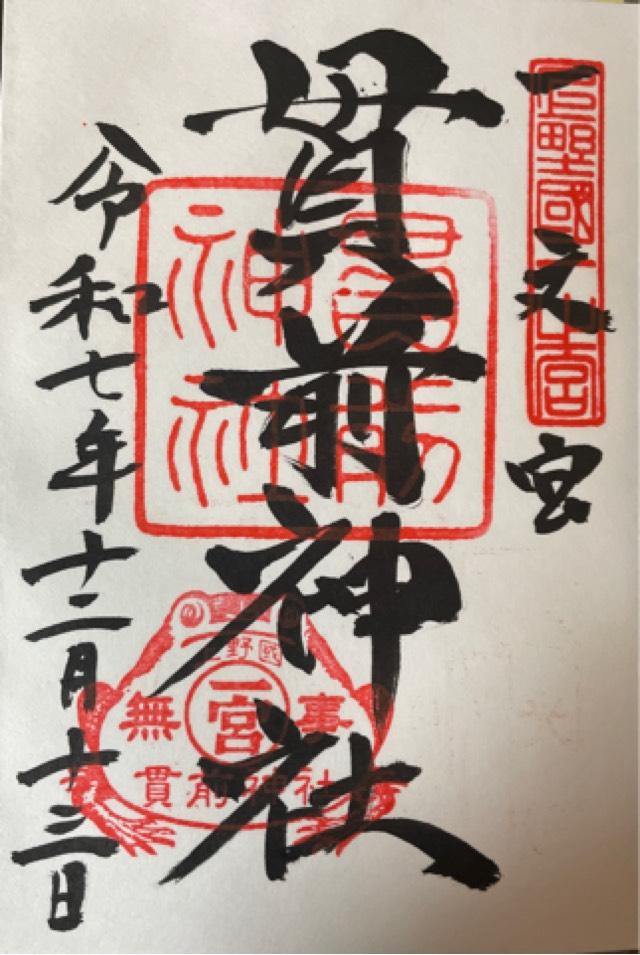 一之宮
上野國一之宮
貫前神社
貫前神社
令和七年十二月十三日
上野國
無事
一宮
貫前神社